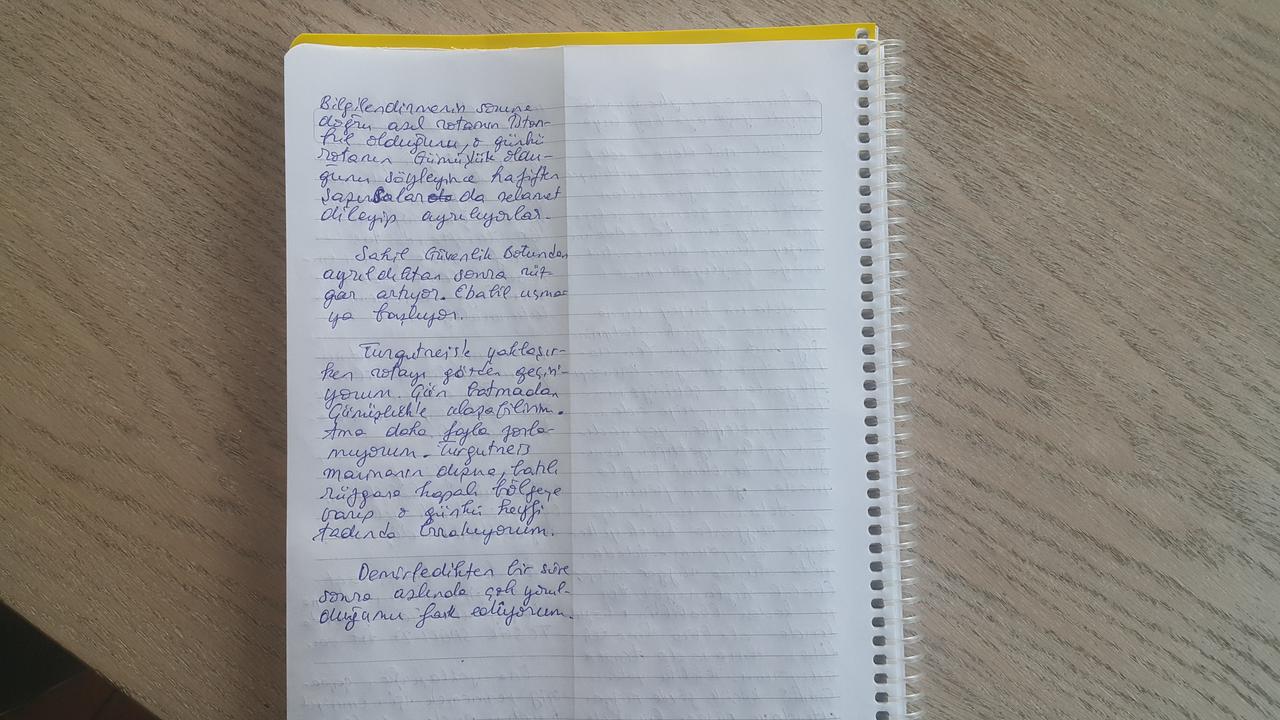 Bilgilendirmenin sonuna
doğru asıl rotamın İstan-
bul olduğunu, o günkü
rotamın Gümüşlük oldu-
ğunu söyleyince hafiften
şaşırsalar da selamet
dileyip ayrılıyorlar.
Sahil Güvenlik Botundan
ayrıldıktan sonra rüz-
gar artıyor. Ebabil uçma-
ya başlıyor.
Turgutreis'e yaklaşır-
ken rotayı gözden geçiri-
yorum. Gün batmadan
Gümüşlük'e ulaşabilirim.
Ama daha fazla zorla-
mıyorum. Turgutreis
marinanın dışına, batılı
rüzgara kapalı bölgeye
varıp o günkü keyfi
tadında bırakıyorum.
Demirledikten bir süre
sonra aslında çok yorul-
duğumu fark ediyorum.